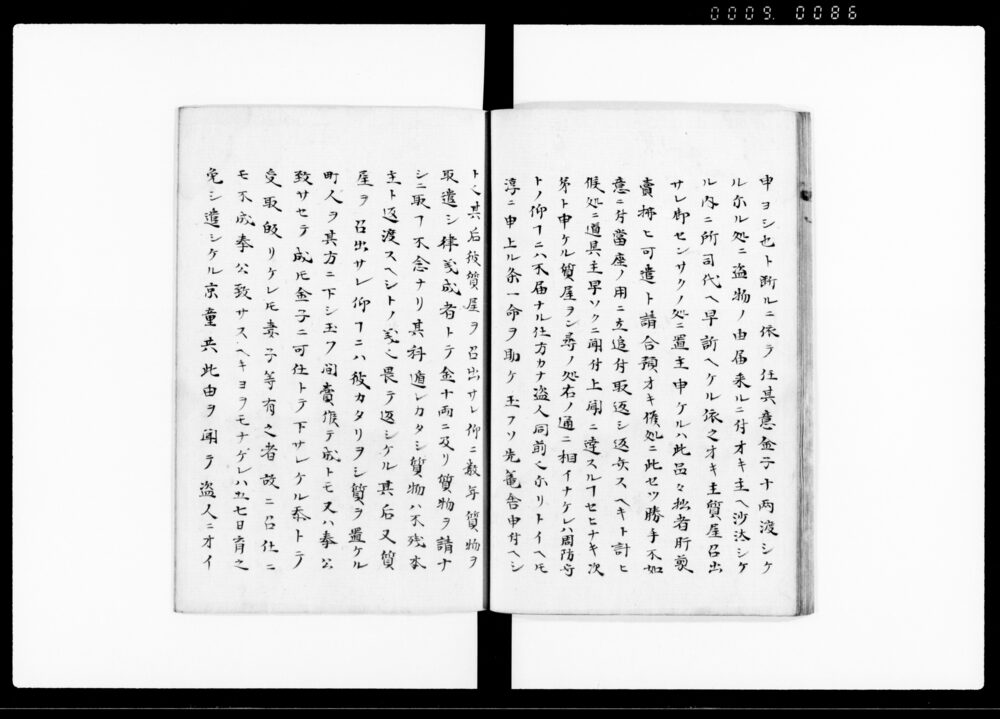 0009. 0086
申ヨシ也ト断ルニ依テ任其意金子十両渡シケ
ル然ル処ニ盗物ノ由届来ルニ付オキ主ヘ沙汰シケ
ル内ニ所司代ヘ早訴ヘケル依之オキ主質屋召出
サレ御センサクノ処ニ置主申ケルハ此品々拙者肝煎
賣捌ヒ可遣ト請合預オキ候処ニ此セツ勝手不如
意ニ付當座ノ用ニ立追付取返シ返弁スヘキト計ヒ
候処ニ道具主早ソクニ聞付上聞ニ達スルヿセヒナキ次
第ト申ケル質屋ヲシ尋ノ処右ノ通ニ相イナケレハ周防守
トノ仰ヿニハ不届ナル仕方カナ盗人同前也ホリトイヘ𪜈
淳ニ申上ル条一命ヲ助ケ玉フソ先篭舎申付ヘシ
ト也其后彼質屋ヲ召出サレ仰ニ数年質物ヲ
取遣シ律義成者トテ金十両ニ及リ質物ヲ請ナ
シニ取ヿ不念ナリ其科遁レカタシ質物ハ不残本
主ト返渡スヘシトノ義也畏テ返シケル其后又質
屋ヲ召出サレ仰ヿニハ彼カタリヲシ質ヲ置ケル
町人ヲ其方ニ下シ玉フ間賣候テ成トモ又ハ奉公
致サセテ成𪜈金子ニ可仕トテ下サレケル忝トテ
受取皈リケレ𪜈妻子等有之者故ニ召仕ニ
モ不成奉公致サスヘキヨヲモナケレハ五七日育之
免シ遣シケル京童共此由ヲ聞テ盗人ニオイ